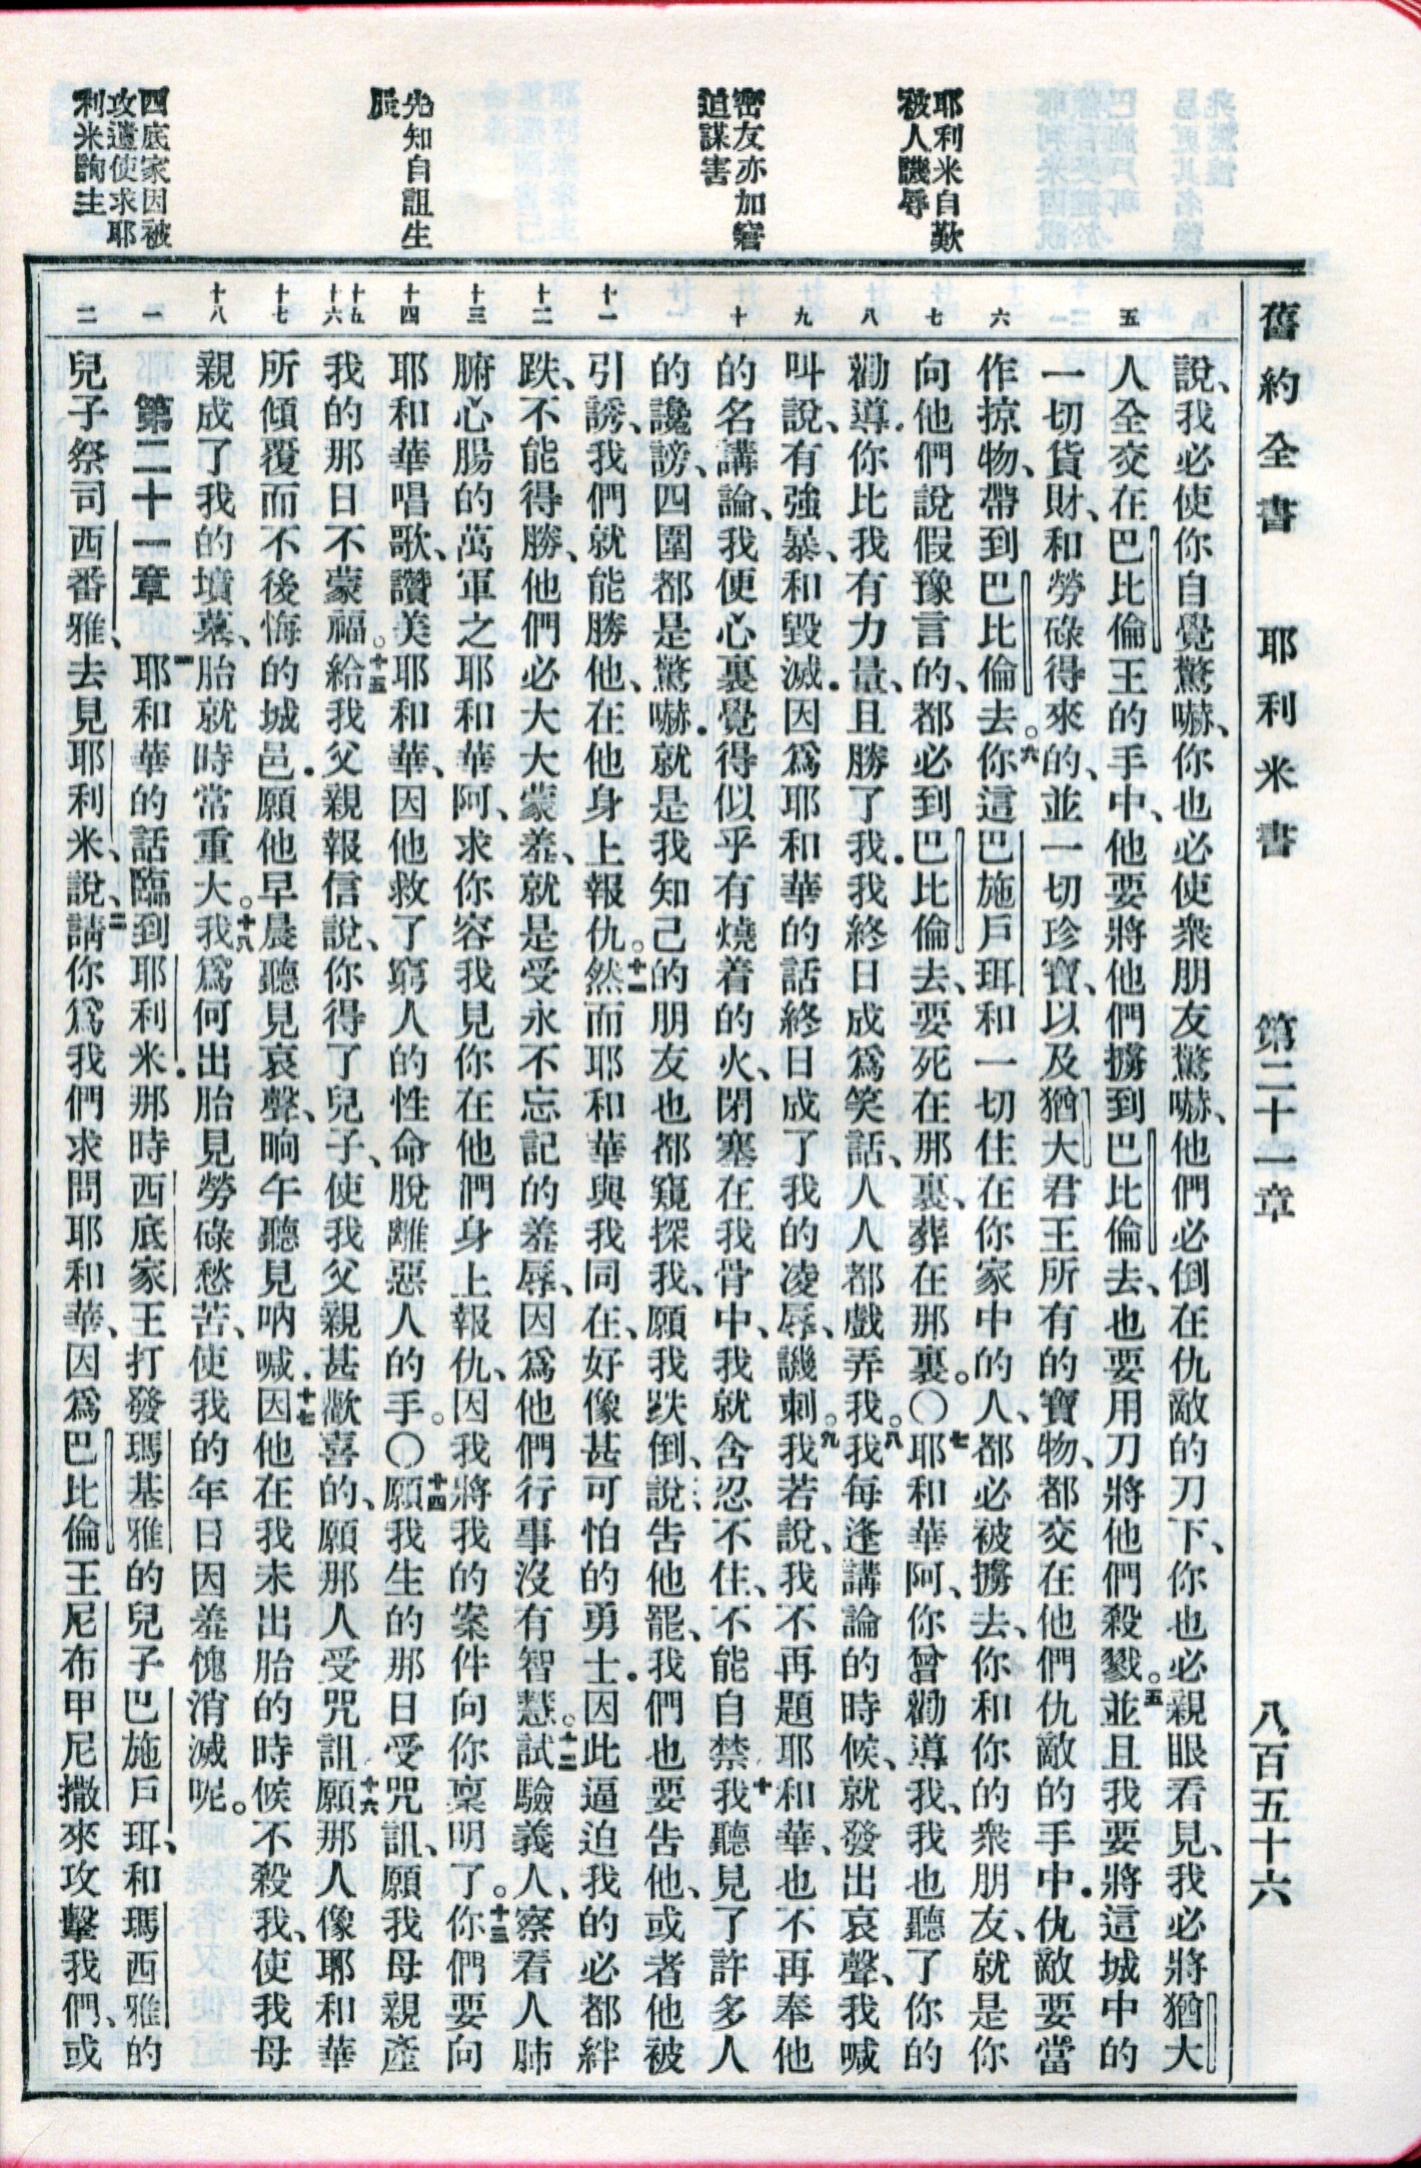 舊約全書　耶利米書　第二十一章　八百五十六
耶利米自歎
被人譏辱
密友亦加窘
迫謀害
先知自詛生
辰
西底家因被
攻遣使求耶
利米詢主
五
六
七
八
九
十
十一
十二
十三
十四
十五
十六
十七
十八
一
二
說、我必使你自覺驚嚇、你也必使衆朋友驚嚇、他們必倒在仇敵的刀下、你也必親眼看見、我必將猶大
人全交在巴比倫王的手中、他要將他們擄到巴比倫去、也要用刀將他們殺戮。五並且我要將這城中的
一切貨財、和勞碌得來的、並一切珍寶、以及猶大君王所有的寶物、都交在他們仇敵的手中．仇敵要當
作掠物、帶到巴比倫去。六你這巴施戶珥和一切住在你家中的人、都必被擄去、你和你的衆朋友、就是你
向他們說假豫言的、都必到巴比倫去、要死在那裏、葬在那裏。〇七耶和華阿、你曾勸導我、我也聽了你的
勸導．你比我有力量、且勝了我．我終日成爲笑話、人人都戲弄我。八我每逢講論的時候、就發出哀聲、我喊
叫說、有強暴、和毀滅．因爲耶和華的話終日成了我的凌辱、譏刺。九我若說、我不再題耶和華、也不再奉他
的名講論、我便心裏覺得似乎有燒着的火、閉塞在我骨中、我就含忍不住、不能自禁．十我聽見了許多人
的讒謗、四圍都是驚嚇．就是我知己的朋友也都窺探我、願我跌倒、說、告他罷、我們也要告他、或者他被
引誘、我們就能勝他、在他身上報仇。十一然而耶和華與我同在、好像甚可怕的勇士．因此逼迫我的必都絆
跌、不能得勝、他們必大大蒙羞、就是受永不忘記的羞辱、因爲他們行事沒有智慧。十二試驗義人、察看人肺
腑心腸的萬軍之耶和華阿、求你容我見你在他們身上報仇、因我將我的案件向你稟明了。十三你們要向
耶和華唱歌、讚美耶和華、因他救了窮人的性命脫離惡人的手。〇十四願我生的那日受咒詛、願我母親產
我的那日不蒙福。十五給我父親報信說、你得了兒子、使我父親甚歡喜的、願那人受咒詛．十六願那人像耶和華
所傾覆而不後悔的城邑．願他早晨聽見哀聲、晌午聽見吶喊．十七因他在我未出胎的時候不殺我、使我母
親成了我的墳墓、胎就時常重大。十八我爲何出胎見勞碌愁苦、使我的年日因羞愧消滅呢。
第二十一章　一耶和華的話臨到耶利米．那時西底家王打發瑪基雅的兒子巴施戶珥、和瑪西雅的
兒子祭司西番雅、去見耶利米、說、二請你爲我們求問耶和華、因爲巴比倫王尼布甲尼撒來攻擊我們、或